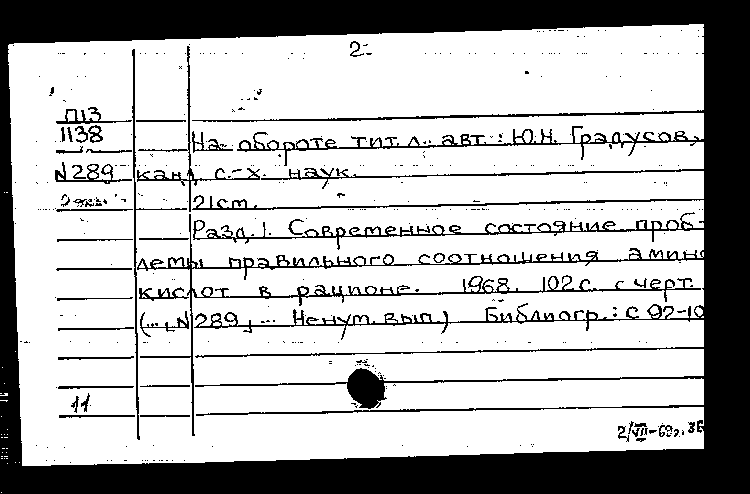 2.
П13
1138
На обороте тит. л. авт.: Ю.Н. Градусов,
N289 канд с.-х. наук.
2 экз.
21 cm.
Разд. 1. Современное состояние проб-
лемы правильного соотношения амино
кислот в рационе. 1968. 102 с. с черт.
(..., N 289, ... Ненум. вып.) Библиогр.: с 92-10
11
2/VII-69г.